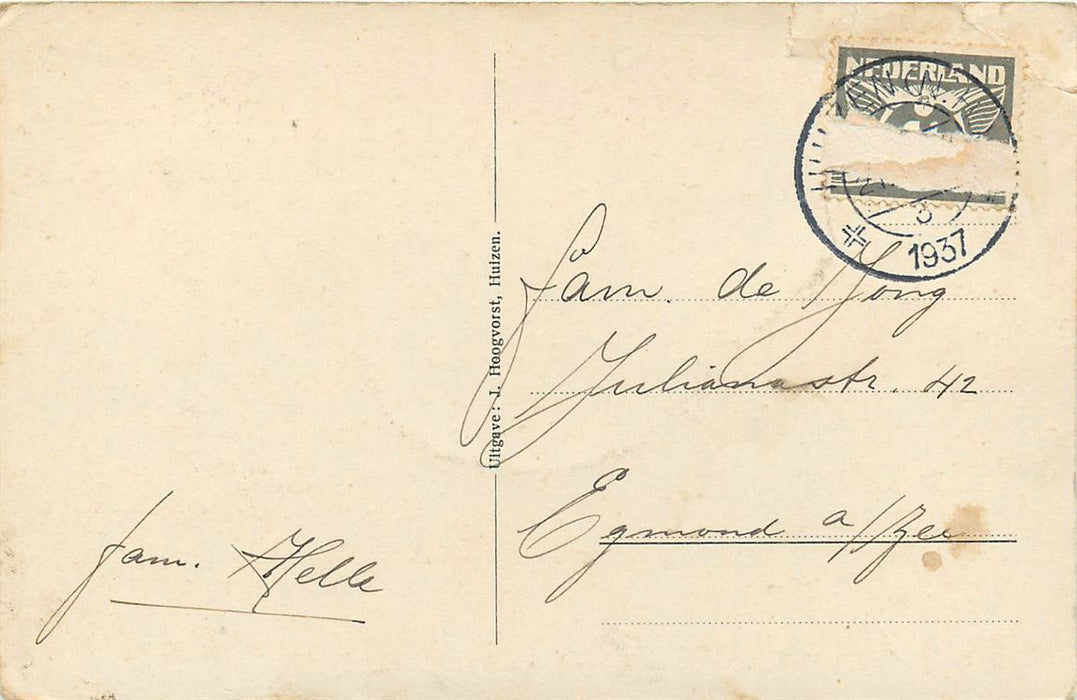 NEDERLAND
3
1937
Uitgave: J. Hoogvorst, Huizen.
Fam. de Jong
Julianastr. 42
Egmond a/Zee
fam. Helle